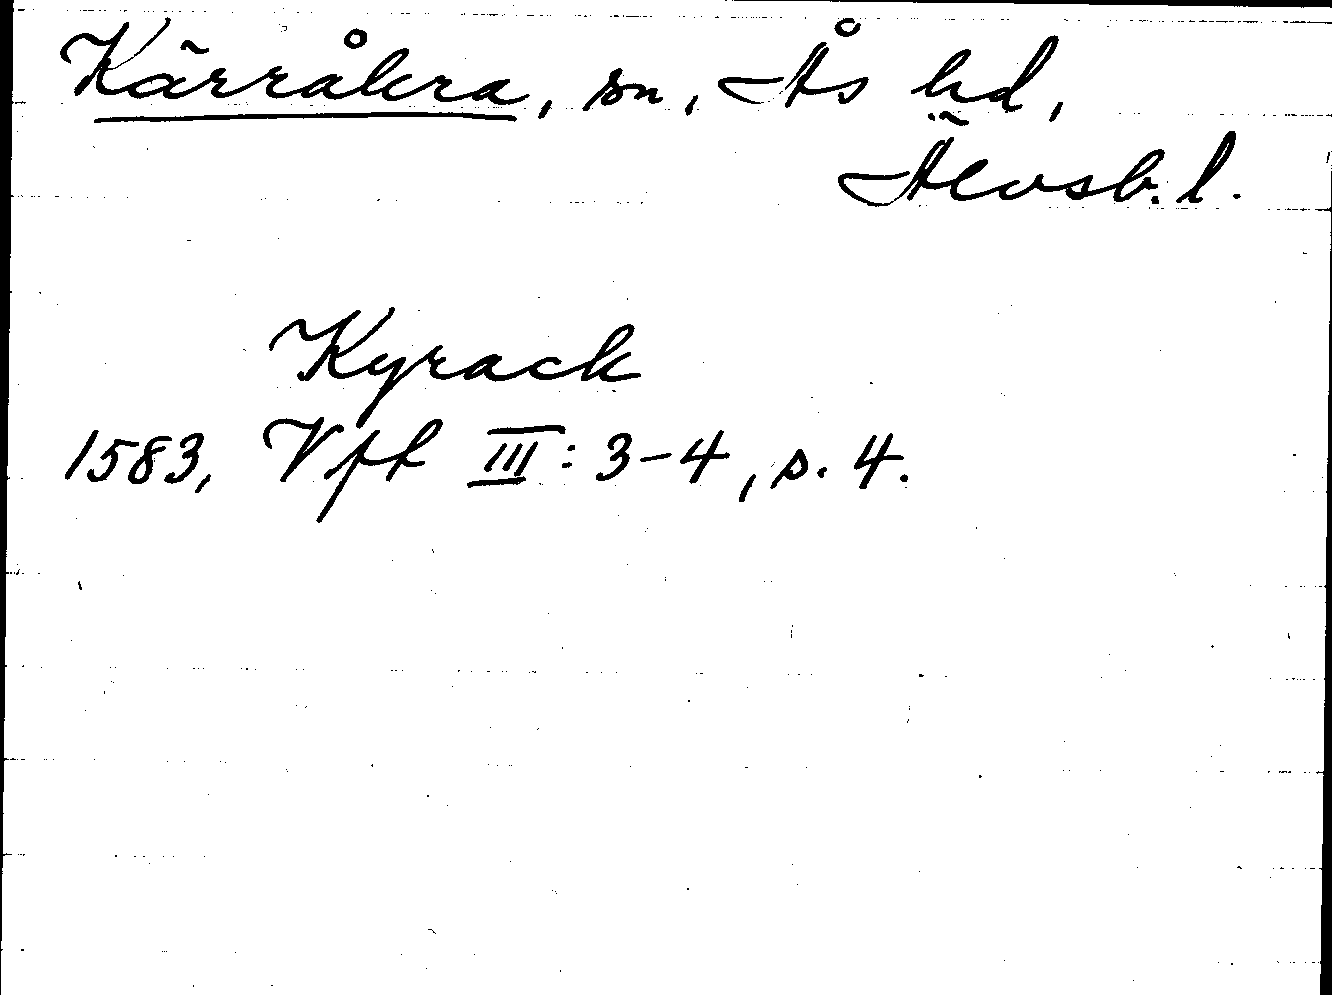 Kärråkra, sn, Ås hd,
Älvsb. l.
Kyrack
1583, Vft III: 3-4, s. 4.